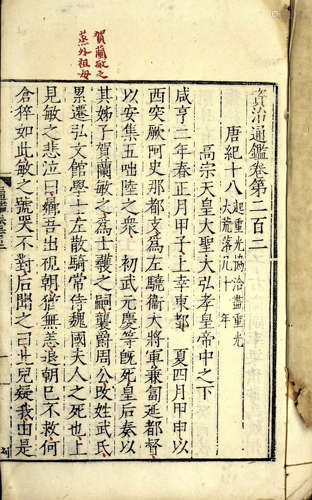 賀蘭敏之
蒸外祖母
資治通鑑卷第二百二
唐紀十八 起重光協洽盡重光
大荒落凡十一年
高宗天皇大聖大弘孝皇帝中之下
咸亨二年春正月甲子上幸東都 夏四月甲申以
西突厥阿史那都支為左驍衛大將軍兼匐延都督
以安集五咄陸之衆 初武元慶等旣死皇后奏以
其姊子賀蘭敏之為士彠之嗣襲爵周公改姓武氏
累遷弘文館學士左散騎常侍魏國夫人之死也上
見敏之悲泣曰曏吾出視朝猶無恙退朝已不救何
倉猝如此敏之號哭不對后聞之曰此兒疑我由是